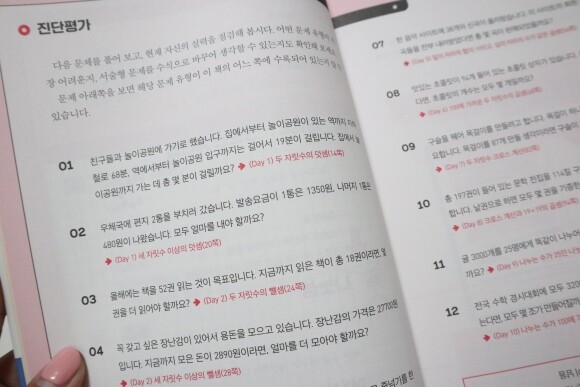 진단평가
다음 문제를 풀어 보고, 현재 자신의 실력을 점검해 봅시다. 어떤 문제 유형이
장 어려운지, 서술형 문제를 수식으로 바꾸어 생각할 수 있는지도 확인해 보세요
문제 아래쪽을 보면 해당 문제 유형이 이 책의 어느 쪽에 수록되어 있는지
있습니다.
01 친구들과 놀이공원에 가기로 했습니다. 집에서부터 놀이공원이 있는 역까지
철로 68분, 역에서부터 놀이공원 입구까지는 걸어서 19분이 걸립니다. 집에서 놀
이공원까지 가는 데 총 몇 분이 걸릴까요? ➔ (Day 1) 두 자릿수의 덧셈(14쪽)
02 우체국에 편지 2통을 부치러 갔습니다. 발송요금이 1통은 1350원, 나머지 1통은
480원이 나왔습니다. 모두 얼마를 내야 할까요?
➔ (Day 1) 세 자릿수 이상의 덧셈(20쪽)
03 올해에는 책을 52권 읽는 것이 목표입니다. 지금까지 읽은 책이 총 18권이라면, 몇
권을 더 읽어야 할까요? ➔ (Day 2) 두 자릿수의 뺄셈(24쪽)
04 꼭 갖고 싶은 장난감이 있어서 용돈을 모으고 있습니다. 장난감의 가격은 27700원
입니다. 지금까지 모은 돈이 2890원이라면, 얼마를 더 모아야 할까요?
➔ (Day 2) 세 자릿수 이상의 뺄셈(28쪽)
줄넘기를 한
07 한 음악 사이트에
곡들을 전부 내려받았다면 총 몇 곡이
08 맛있는 초콜릿이 14개 들어 있는 초콜릿 상자가 있습니다.
다면, 초콜릿의 개수는 모두 몇 개일까요?
09 구슬을 꿰어 목걸이를 만들려고 합니다. 목걸이
요합니다. 목걸이를 87개 만들 생각이라면 구슬이
➔ (Day 7) 두 자릿수 크로스 계산(92쪽)
10 총 197권이 들어 있는 문학 전집을 114질
합니다. 낱권으로 하면 모두 몇 권을 기증한
➔ (Day 8) 크로스 계산과 19×19의
11 귤 3000개를 25명에게 똑같이 나누어
까요? ➔ (Day 9) 나누는 수가 25인 나눗
12 전국 수학 경시대회에 모두 320
는다면, 모두 몇 조가 만들어질까
➔ (Day 10) 나누는 수가 100에